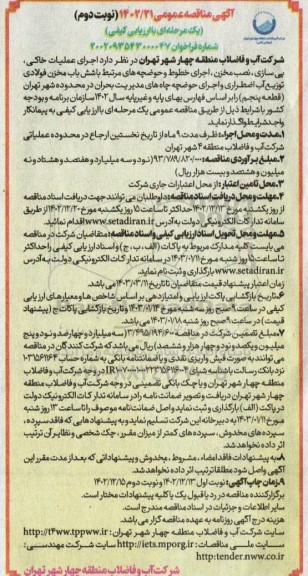 آگهی مناقصه عمومی ۱۴۰۲/۲۱ (نوبت دوم)
(یک مرحله‌ای با ارزیابی کیفی)
شماره فراخوان ۲۰۰۲۰۹۳۵۴۳۰۰۰۰۴۷
شرکت آب و فاضلاب منطقه چهار شهر تهران در نظر دارد اجرای عملیات خاکی،
بی سازی، نصب مخزن، اجرای خطوط و حوضچه های مرتبط باشش باب مخزن فولادی
توزیع آب اضطراری و اجرای حوضچه چاه های مدیریت بحران در محدوده شهر تهران
(قطعه پنجم) را بر اساس فهارس بهای پایه و غیر پایه سال ۱۴۰۲ سازمان برنامه و بودجه
کشور با شرایط ذیل از طریق مناقصه عمومی یک مرحله ای با ارزیابی کیفی به پیمانکار
واجد شرایط واگذار نماید.
۱.مدت و محل اجرا: ظرف مدت ۹ ماه از تاریخ نخستین ارجاع در محدوده عملیاتی
شرکت آب و فاضلاب منطقه ۴ شهر تهران
۲.مبلغ برآوردی مناقصه: ۹۳/۷۸۹/۸۲۰/۰۰۰ (نود و سه میلیارد و هفتصد و هشتاد و نه
میلیون و هشتصد و بیست هزار ریال)
۳.محل تامین اعتبار: از محل اعتبارات جاری شرکت
۴.مهلت و محل دریافت اسناد مناقصه: داوطلبان می توانند جهت دریافت اسناد مناقصه
از روز یکشنبه مورخ ۱۴۰۲/۱۲/۱۳ حداکثر تا ساعت ۱۵ روز یکشنبه مورخ ۱۴۰۲/۱۲/۲۰ از طریق
سامانه تدارکات الکترونیکی دولت به آدرس www.setadiran.ir اقدام نمائید.
۵.مهلت و محل تحویل اسناد ارزیابی کیفی و اسناد مناقصه: متقاضیان شرکت در مناقصه
می بایست کلیه مدارک مربوط به پاکات (الف، ب، ج) و اسناد ارزیابی کیفی را حداکثر
تا ساعت ۱۵ روز شنبه مورخ ۱۴۰۳/۰۱/۱۱ در سامانه تدارکات الکترونیکی دولت به آدرس
www.setadiran.ir بارگذاری و ثبت نام نماید.
زمان اعتبار پیشنهاد قیمت متقاضیان تا تاریخ ۱۴۰۳/۰۳/۱۱ می باشد.
۶.تاریخ بازگشایی پاکت ارزیابی و امتیازدهی بر اساس شاخص ها و معیارهای ارزیابی
کیفی در ساعت ۹ صبح روز سه شنبه مورخ ۱۴۰۳/۰۱/۱۴ و تاریخ بازگشایی پاکات ج (پیشنهاد
قیمت) در ساعت ۹ صبح روز شنبه مورخ ۱۴۰۳/۰۱/۱۸ می باشد.
۷.مبلغ تضمین شرکت در مناقصه
میلیون و یکصد و نود و چهار هزار و ششصد) ریال می باشد که شرکت کنندگان در مناقصه
می توانند به صورت فیش واریزی نقدی و یا ضمانتنامه بانکی به شماره حساب
نزد بانک رسالت باشناسه شبای
منطقه چهار شهر تهران و یا چک بانکی تضمینی در وجه شرکت آب و فاضلاب منطقه
چهار شهر تهران دریافت و تصویر ضمانت نامه را در سامانه تدارکات الکترونیک دولت
در پاکت (الف) بارگذاری و ثبت نماید و اصل ضمانت نامه موصوف را تا ساعت ۱۳ روز شنبه
مورخ ۱۴۰۳/۰۱/۱۱ به دبیرخانه این شرکت تسلیم نماید و به پیشنهاد هایی که فاقد سپرده،
سپرده های مخدوش، سپرده های کمتر از میزان مقرر، چک شخصی و نظایر آن ترتیب
اثر داده نخواهد شد.
۸.به پیشنهادات فاقد امضاء، مشروط، مخدوش و پیشنهاداتی که بعد از مدت مقرر این
آگهی واصل شود مطلقا ترتیب اثر داده نخواهد شد.
۹.زمان چاپ آگهی: نوبت اول ۱۴۰۲/۱۲/۱۳ نوبت دوم ۱۴۰۲/۱۲/۱۵
برگزار کننده مناقصه در رد یا قبول یک یا کلیه پیشنهادات مختار است.
سایر اطلاعات و جزئیات در اسناد مناقصه مندرج است.
هزینه درج آگهی روزنامه به عهده مناقصه گزار می باشد.
سایت شرکت آب و فاضلاب منطقه چهار شهر تهران: http://t4ww.tpww.ir
سایت ملی مناقصات: http://iets.mporg.ir سایت شرکت مهندسی:
http:tender.nww.co.ir
شرکت آب و فاضلاب منطقه چهار شهر تهران